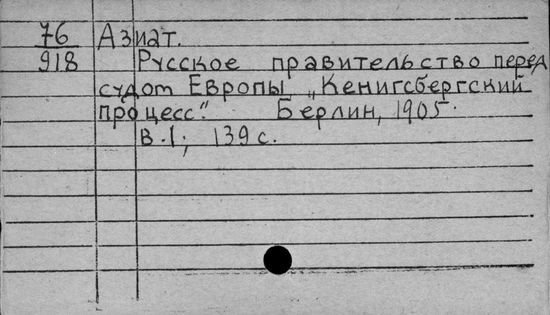 76 Азиат.
918 Русское правительство перед
судот Европы „Кенигсбергский
процесс". Берлин, 1905.
в.1; 139 с.